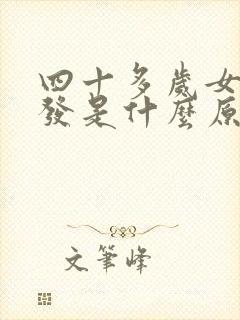 四十多歲女
發是什麼原
文筆峰